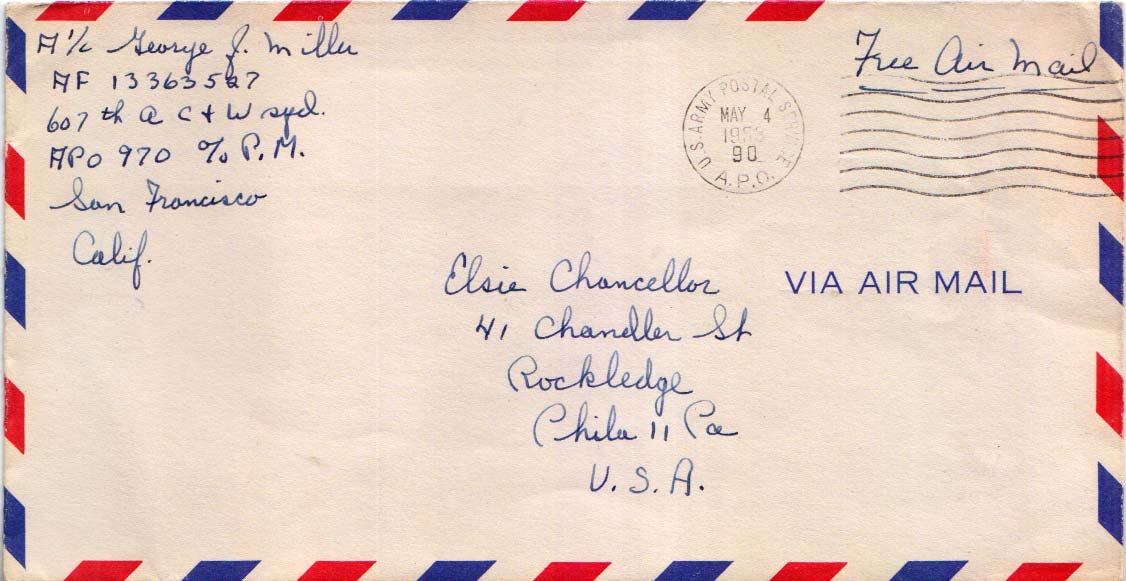 A 1/c George J. Miller
AF 13363527
607th A C & W sqd.
APO 970 c/o P.M.
San Francisco
Calif.
Free Air Mail
U.S. ARMY POSTAL SERVICE
MAY 4
1953
90
A.P.O.
VIA AIR MAIL
Elsie Chancellor
41 Chandler St
Rockledge
Phila 11 Pa
U.S.A.